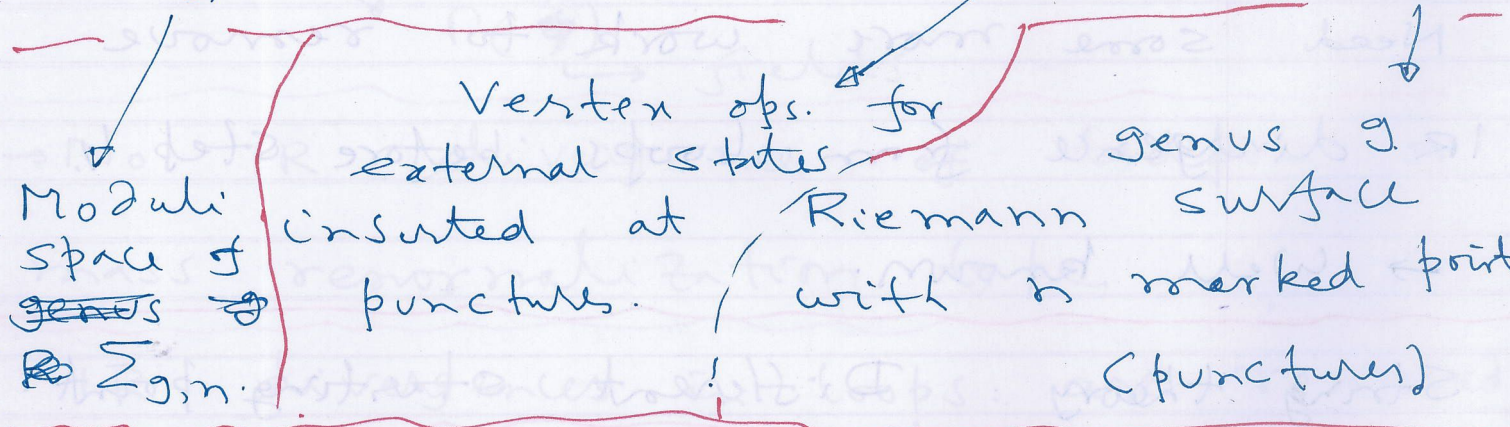 Moduli
space of
genus g
Σg,n.
Vertex ops. for
external states
inserted at
punctures.
genus g
Riemann surface
with n marked point
(punctures)